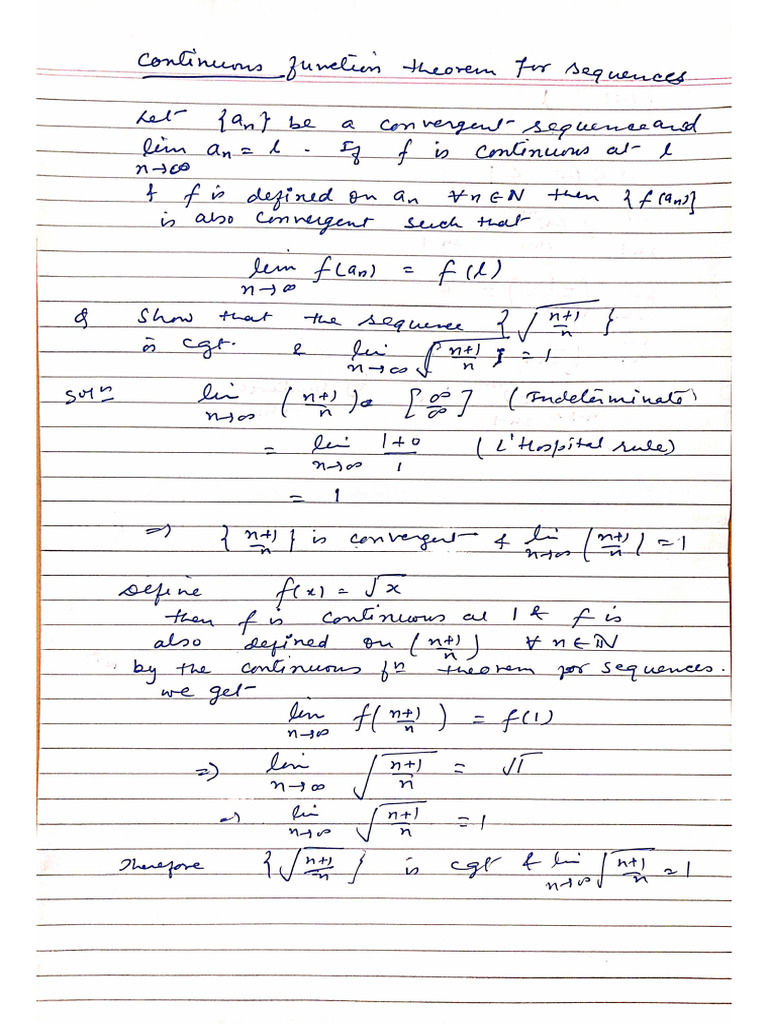 continuous function theorem for sequences
Let {aₙ} be a convergent sequence and
lim n→∞ aₙ = l . If f is continuous at l
& f is defined on aₙ ∀n∈ℕ then {f(aₙ)}
is also convergent such that
lim n→∞ f(aₙ) = f(l)
Q Show that the sequence {√((n+1)/n)}
is cgt. & lim n→∞ √((n+1)/n) = 1
Solⁿ lim n→∞ ((n+1)/n) [∞/∞] (Indeterminate)
= lim n→∞ (1+0)/1 (L'Hospital rule)
= 1
⇒ {(n+1)/n} is convergent & lim n→∞ ((n+1)/n) = 1
Define f(x) = √x
then f is continuous at 1 & f is
also defined on ((n+1)/n) ∀ n∈ℕ
by the continuous fⁿ theorem for sequences.
we get
lim n→∞ f((n+1)/n) = f(1)
⇒ lim n→∞ √((n+1)/n) = √1
⇒ lim n→∞ √((n+1)/n) = 1
Therefore {√((n+1)/n)} is cgt & lim n→∞ √((n+1)/n) = 1